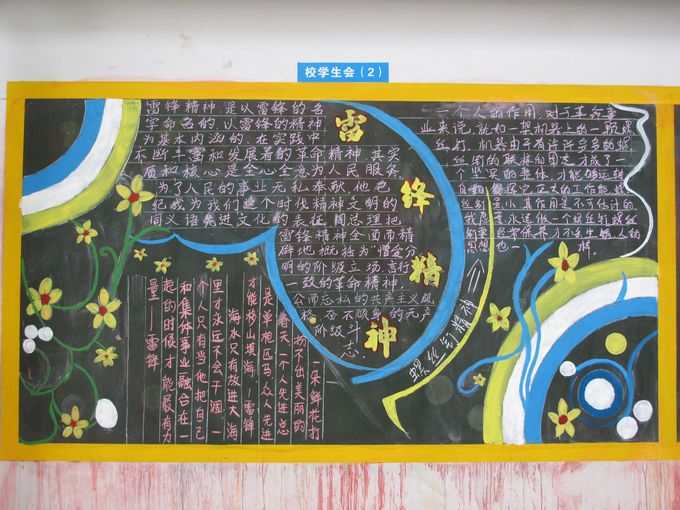 校学生会（2）
雷锋精神
雷锋精神,是以雷锋的名
字命名的,以雷锋的精神
为基本内涵的,在实践中
不断丰富和发展着的革命精神,其实
质和核心是全心全意为人民服务,
为了人民的事业无私奉献,他也
纪或为我们这个时代精神文明的
同义语先进文化的表征.周总理把
雷锋精神全面而精
辟地概括为“憎爱分
明的阶级立场,言行
一致的革命精神,
公而忘私的共产主义风
格,奋不顾身的无产
阶级斗
志
一个人的作用,对于革命事
业来说,就如一架机器上的一颗螺
丝钉.机器由于有许许多多的螺
丝钉的联接和固定,才成了一
个坚实的整体,才能够运转
自如,发挥它巨大的工作能
丝钉虽小,其作用是不可估计的
我愿永远做一个螺丝钉.螺丝
钉要经常保养才不会生锈.人的
思想也一样.
螺丝钉精神
一朵鲜花打
扮不出美丽的
春天,一个人先进总
是单枪匹马,众人先进
才能移山填海.—雷锋
海水只有放进大海
里才永远不会干涸,一
个人只有当他把自己
和集体事业融合在一
起的时候才能最有力
量.—雷锋